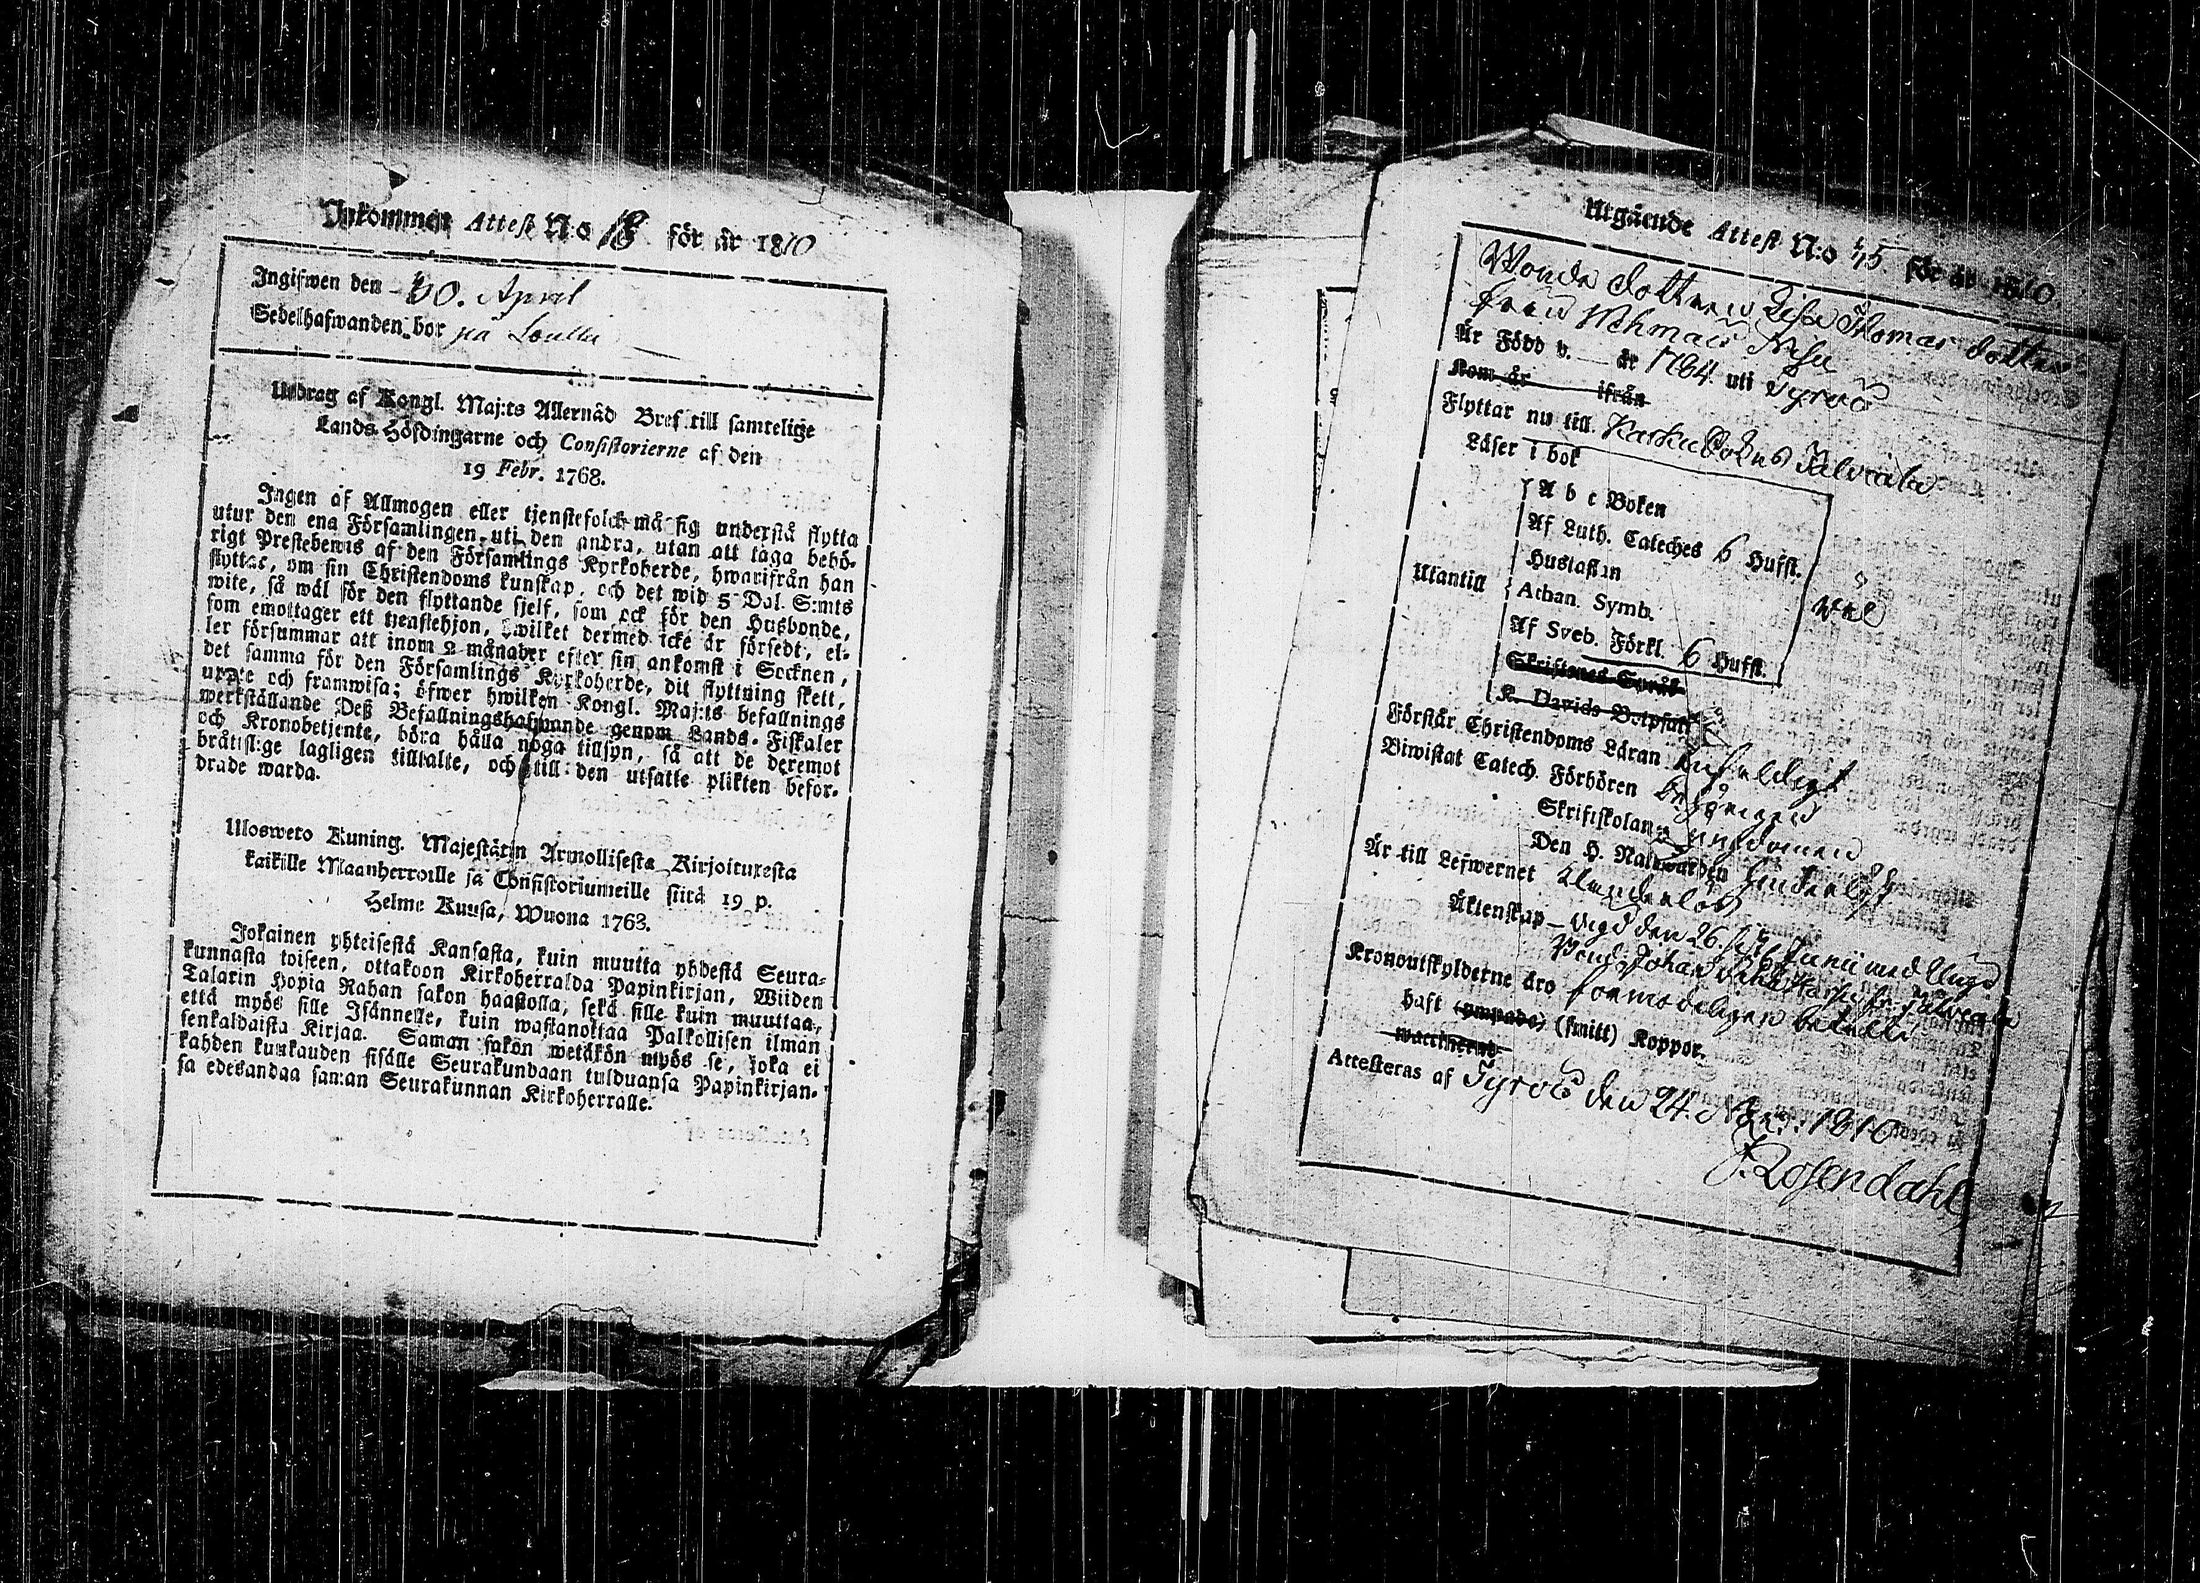 Inkommen Attest N:o 18 för år 1810
Ingifwen den 30. April
Sedelhafwanden bor på
Utdrag af Kongl. Maj:ts Allernåd Bref till samtelige
Lands-Höfdingarne och Consistorierne af den
19 Febr. 1768.
Ingen af Allmogen eller tjenstefolck må sig understå flytta
utur den ena Församlingen uti den andra, utan att taga behö-
rigt Prestebewis af den Församlings Kyrkoherde, hwarifrån han
flyttar, om sin Christendoms kunskap, och det wid 5 Dal. S:mts
wite, så wäl för den flyttande sjelf, som ock för den Husbonde,
som emottager ett tjenstehjon, hwilket dermed icke är försedt, el-
ler försummar att inom 2 månader efter sin ankomst i Socknen,
det samma för den Församlings Kyrkoherde, dit flyttning skett,
uppte och framwisa; öfwer hwilken Kongl. Maj:ts befallnings
werkställande Deß Befallningshafwande genom Lands-Fiskaler
och Kronobetjente, böra hålla noga tillsyn, så att de deremot
bråtislige lagligen tilltalte, och till den utsatte plikten befor-
drade warda.
Ulosweto Kuning. Majestätin Armollisesta Kirjoituxesta
kaikille Maanherroille ja Consistoriumeille siitä 19 p.
Helme Kuusa, Wuona 1763.
Jokainen yhteisestä Kansasta, kuin muutta yhdestä Seura-
kunnasta toiseen, ottakoon Kirkoherralda Papinkirjan, Wiiden
Talarin Hopia Rahan sakon haastolla, sekä sille kuin muuttaa,
että myös sille Isännelle, kuin wastanottaa Palkollisen ilman
senkaldaista Kirjaa. Saman sakon wetäkön myös se, joka ei
kahden kuukauden sisälle Seurakundaan tulduansa Papinkirjan-
sa edesandaa saman Seurakunnan Kirkoherralle.
Utgående Attest N:o 45. för år 1810
Bonde dottren Lisa Thomas dotter
från Wehmais Nisu
Är Född d. — år 1764. uti Tyrvis
Kom år ifrån
Flyttar nu till Karku Sokns Talviala
Läser i bok
A b c Boken
Af Luth. Cateches 6 Hufst.
Hustaflan
Utantill Athan. Symb. wäl
Af Sveb. Förkl. 6 Hufst.
Skriftenes Språk
K. Davids Botpsalm
Förstår Christendoms Läran enfaldigt
Biwistat Catech. Förhören behörigen
Skriftskolan i ungdomen
Den H. Nattwarden
Är till Lefwernet klanderlös
Äktenskap — Vigd den 26. Junii med Ung
Johan
Kronoutskylderne äro förmodeligen betalte
haft (ympade) (smitt) Koppor.
waccinerad
Attesteras af Tyrvis den 24. 1810
J. Rosendahl